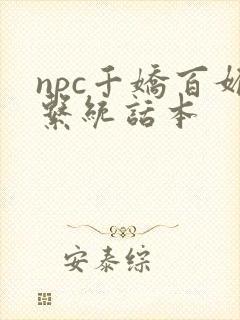 npc千嬌百媚
繫統話本
安泰綜